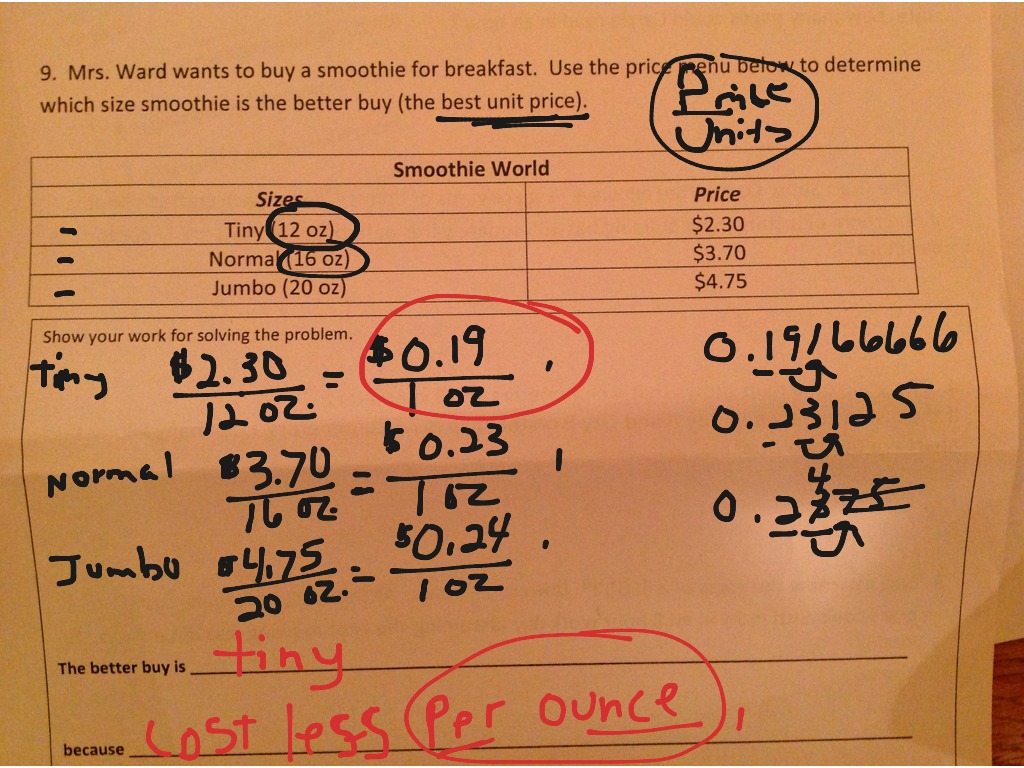 9. Mrs. Ward wants to buy a smoothie for breakfast. Use the price menu below to determine
which size smoothie is the better buy (the best unit price).
Price
Units
Smoothie World
Sizes Price
Tiny (12 oz) $2.30
Normal (16 oz) $3.70
Jumbo (20 oz) $4.75
Show your work for solving the problem.
tiny $2.30 / 12 oz. = $0.19 / 1 oz
0.19166666
Normal $3.70 / 16 oz. = $0.23 / 1 oz
0.23125
Jumbo $4.75 / 20 oz. = $0.24 / 1 oz
4
0.2375
The better buy is tiny
because cost less per ounce